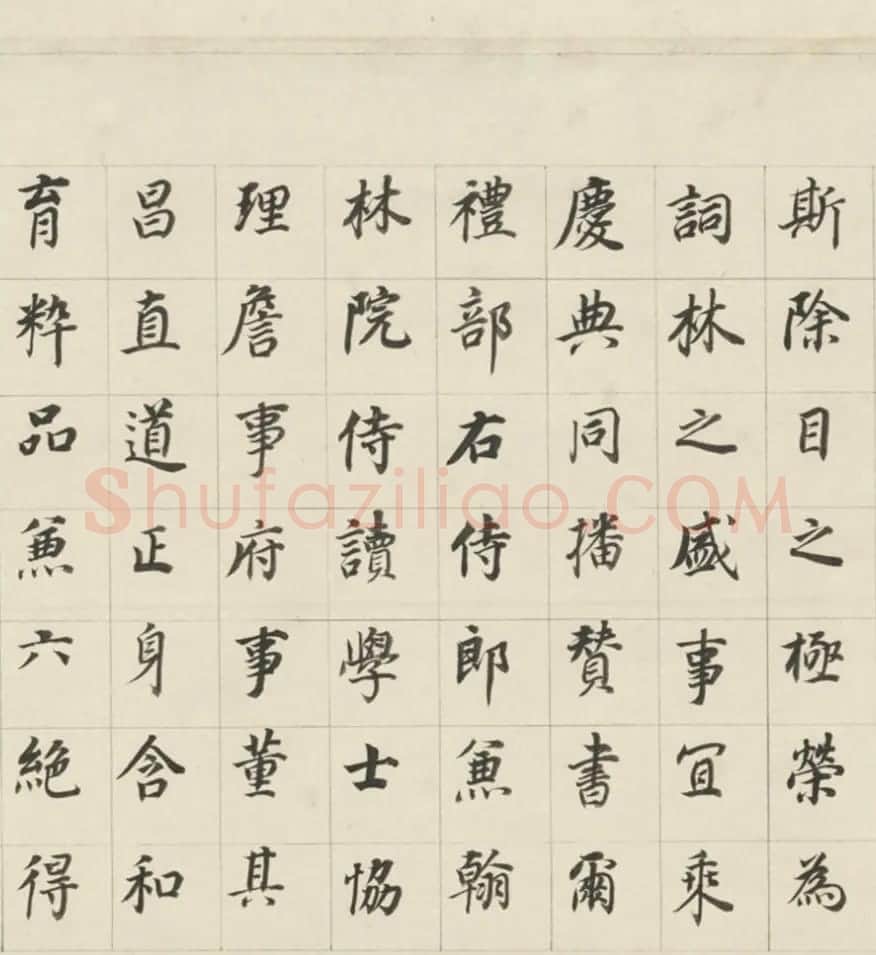 斯除目之極榮為
詞林之盛事宜乘
慶典同播贊書爾
禮部右侍郎兼翰
林院侍讀學士協
理詹事府事董其
昌直道正身含和
育粹品兼六絕得
Shufaziliao.COM